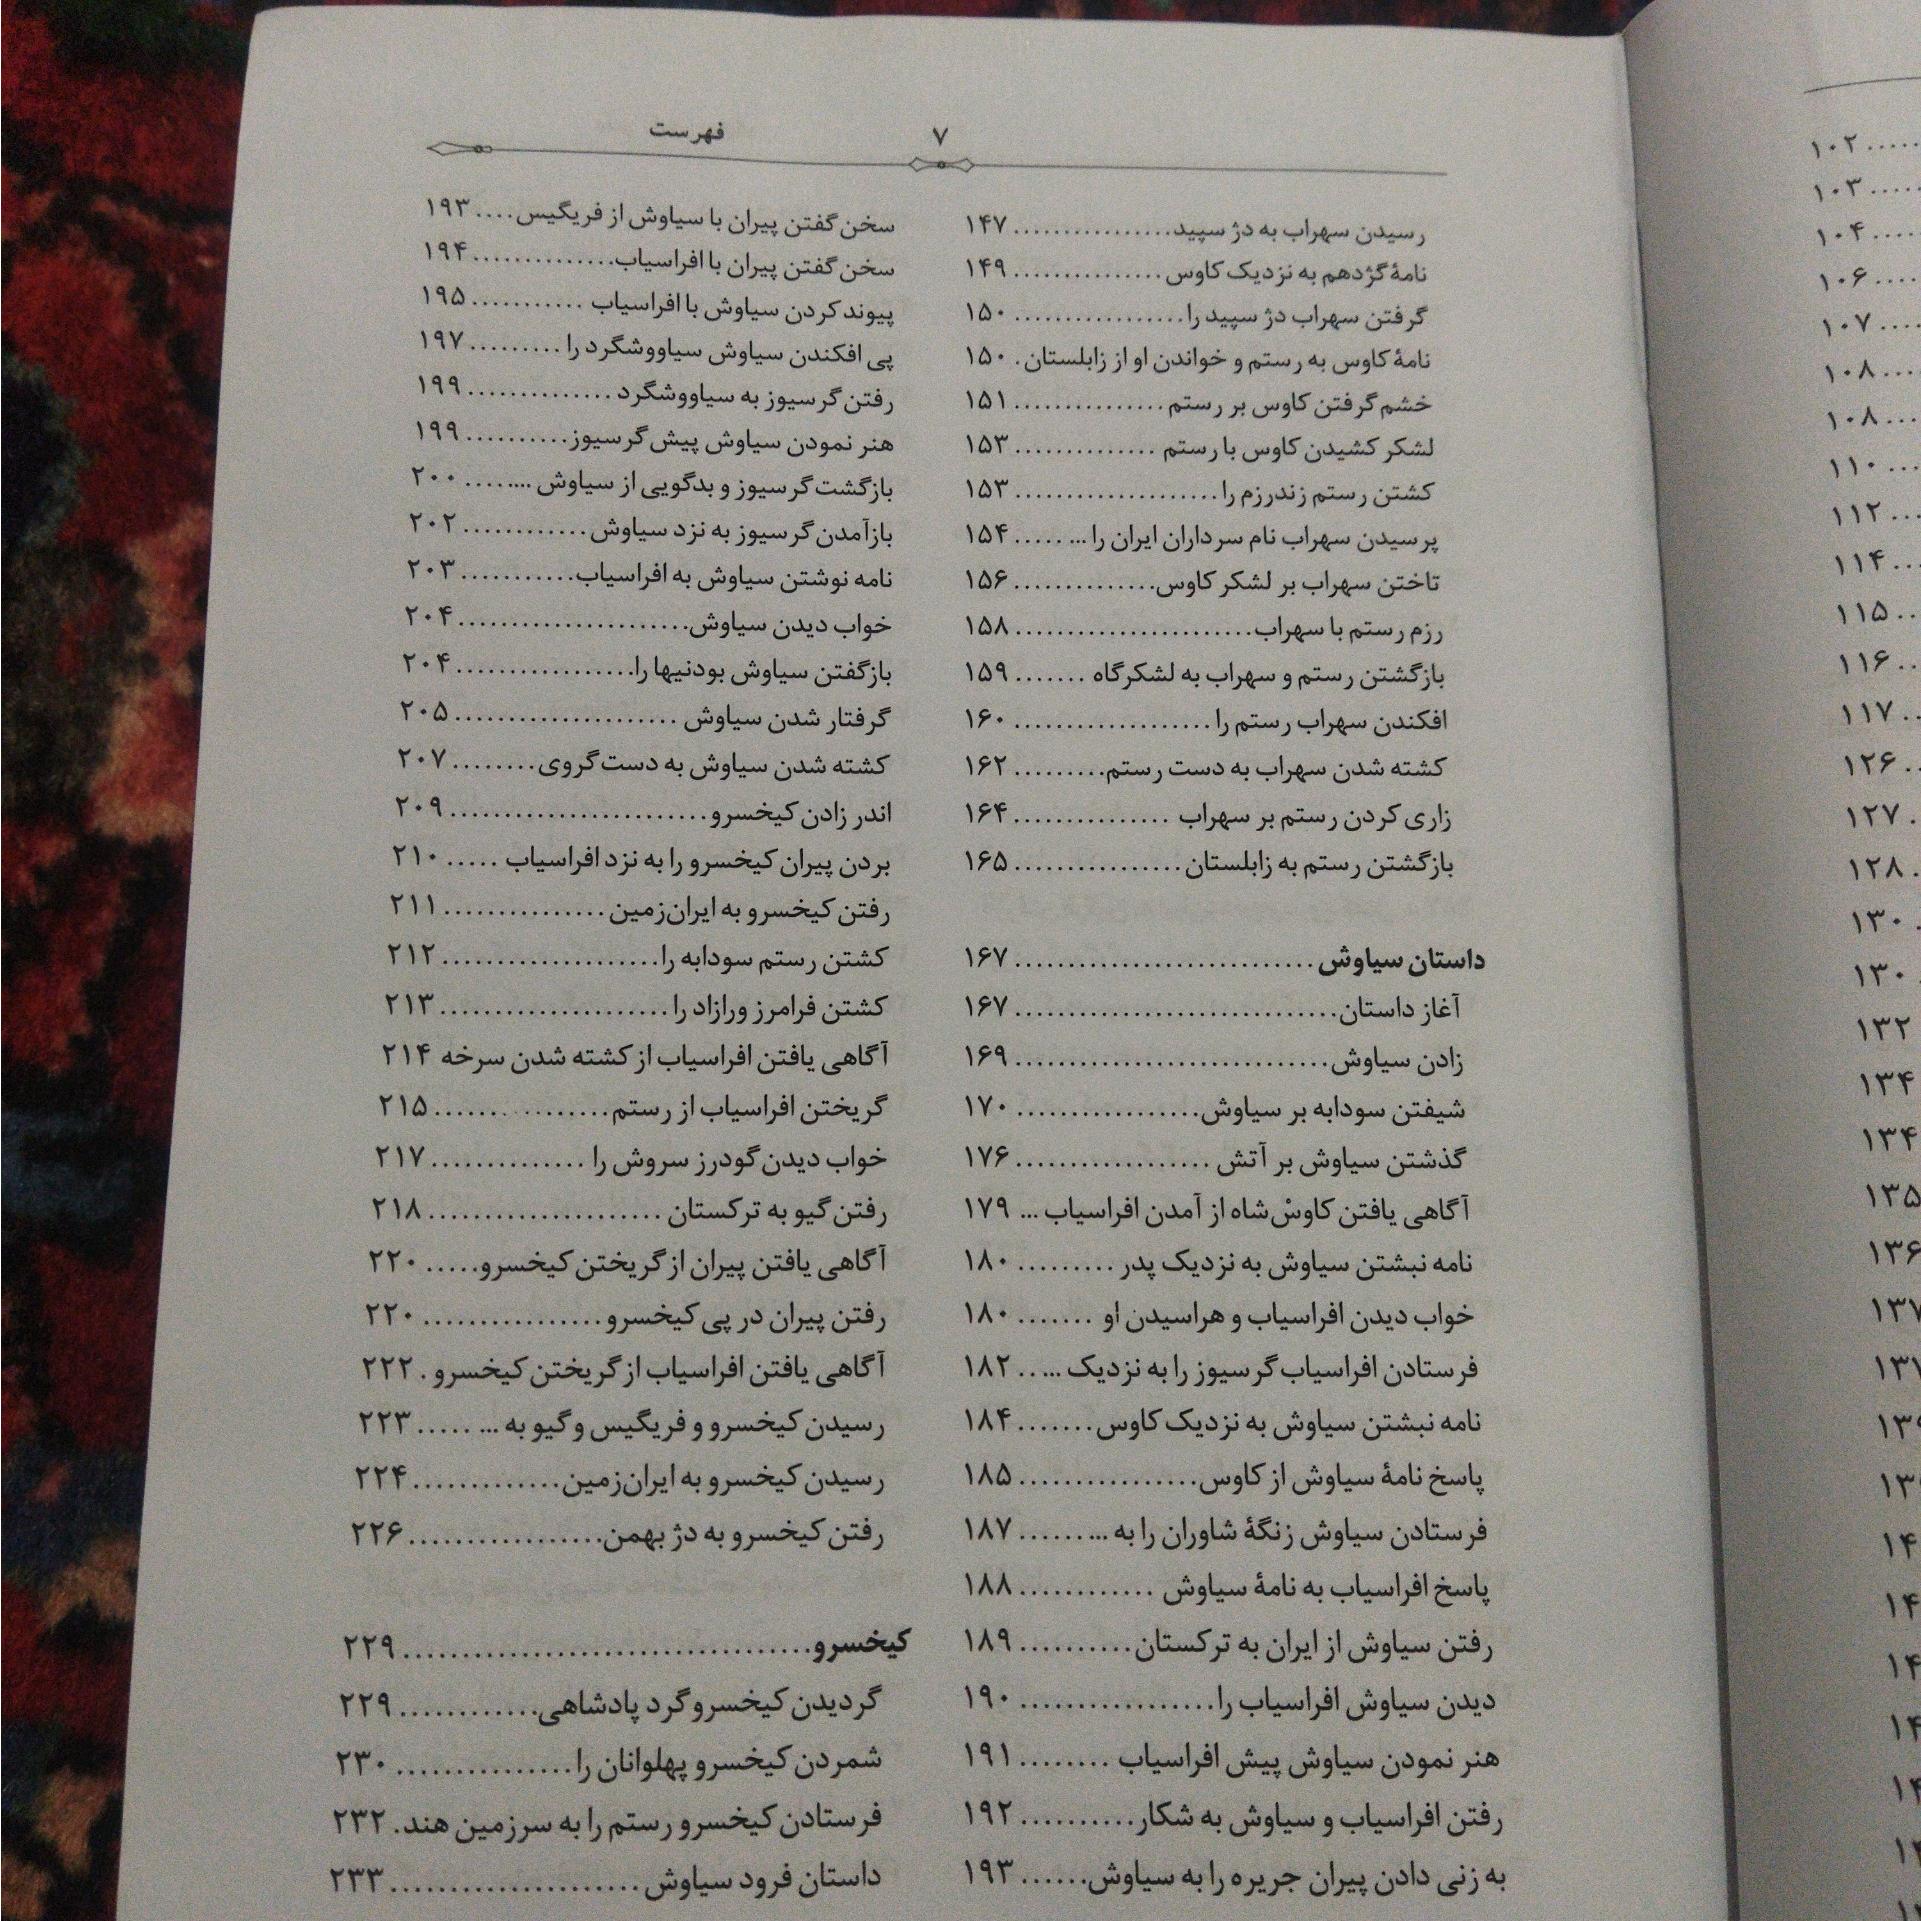 ۷
فهرست
رسیدن سهراب به دژ سپید................ ۱۴۷
نامهٔ گژدهم به نزدیک کاوس ............... ۱۴۹
گرفتن سهراب دژ سپید را................. ۱۵۰
نامهٔ کاوس به رستم و خواندن او از زابلستان . ۱۵۰
خشم گرفتن کاوس بر رستم ............... ۱۵۱
لشکر کشیدن کاوس با رستم .............. ۱۵۳
کشتن رستم زندرزم را .................... ۱۵۳
پرسیدن سهراب نام سرداران ایران را ... ..... ۱۵۴
تاختن سهراب بر لشکر کاوس.............. ۱۵۶
رزم رستم با سهراب....................... ۱۵۸
بازگشتن رستم و سهراب به لشکرگاه ....... ۱۵۹
افکندن سهراب رستم را ................... ۱۶۰
کشته شدن سهراب به دست رستم......... ۱۶۲
زاری کردن رستم بر سهراب ............... ۱۶۴
بازگشتن رستم به زابلستان................ ۱۶۵
داستان سیاوش ............................ ۱۶۷
آغاز داستان.............................. ۱۶۷
زادن سیاوش............................. ۱۶۹
شیفتن سودابه بر سیاوش................. ۱۷۰
گذشتن سیاوش بر آتش .................. ۱۷۶
آگاهی یافتن کاوسْ‌شاه از آمدن افراسیاب ... ۱۷۹
نامه نبشتن سیاوش به نزدیک پدر ......... ۱۸۰
خواب دیدن افراسیاب و هراسیدن او ....... ۱۸۰
فرستادن افراسیاب گرسیوز را به نزدیک ... .. ۱۸۲
نامه نبشتن سیاوش به نزدیک کاوس....... ۱۸۴
پاسخ نامهٔ سیاوش از کاوس................ ۱۸۵
فرستادن سیاوش زنگهٔ شاوران را به ... ...... ۱۸۷
پاسخ افراسیاب به نامهٔ سیاوش ............ ۱۸۸
رفتن سیاوش از ایران به ترکستان .......... ۱۸۹
دیدن سیاوش افراسیاب را.................. ۱۹۰
هنر نمودن سیاوش پیش افراسیاب ........ ۱۹۱
رفتن افراسیاب و سیاوش به شکار.......... ۱۹۲
به زنی دادن پیران جریره را به سیاوش...... ۱۹۳
سخن گفتن پیران با سیاوش از فریگیس .... ۱۹۳
سخن گفتن پیران با افراسیاب.............. ۱۹۴
پیوند کردن سیاوش با افراسیاب ........... ۱۹۵
پی افکندن سیاوش سیاووشگرد را ......... ۱۹۷
رفتن گرسیوز به سیاووشگرد .............. ۱۹۹
هنر نمودن سیاوش پیش گرسیوز.......... ۱۹۹
بازگشت گرسیوز و بدگویی از سیاوش ... ..... ۲۰۰
بازآمدن گرسیوز به نزد سیاوش ............ ۲۰۲
نامه نوشتن سیاوش به افراسیاب........... ۲۰۳
خواب دیدن سیاوش...................... ۲۰۴
بازگفتن سیاوش بودنیها را................. ۲۰۴
گرفتار شدن سیاوش ..................... ۲۰۵
کشته شدن سیاوش به دست گروی........ ۲۰۷
اندر زادن کیخسرو........................ ۲۰۹
بردن پیران کیخسرو را به نزد افراسیاب ..... ۲۱۰
رفتن کیخسرو به ایران‌زمین ............... ۲۱۱
کشتن رستم سودابه را.................... ۲۱۲
کشتن فرامرز ورازاد را ..................... ۲۱۳
آگاهی یافتن افراسیاب از کشته شدن سرخه ۲۱۴
گریختن افراسیاب از رستم................ ۲۱۵
خواب دیدن گودرز سروش را .............. ۲۱۷
رفتن گیو به ترکستان ..................... ۲۱۸
آگاهی یافتن پیران از گریختن کیخسرو..... ۲۲۰
رفتن پیران در پی کیخسرو ................ ۲۲۰
آگاهی یافتن افراسیاب از گریختن کیخسرو . ۲۲۲
رسیدن کیخسرو و فریگیس و گیو به ... ..... ۲۲۳
رسیدن کیخسرو به ایران‌زمین............. ۲۲۴
رفتن کیخسرو به دژ بهمن................. ۲۲۶
کیخسرو.................................. ۲۲۹
گردیدن کیخسرو گرد پادشاهی............ ۲۲۹
شمردن کیخسرو پهلوانان را ............... ۲۳۰
فرستادن کیخسرو رستم را به سرزمین هند. ۲۳۲
داستان فرود سیاوش ..................... ۲۳۳
۱۰۲
۱۰۳
۱۰۴
۱۰۶
۱۰۷
۱۰۸
۱۰۸
۱۱۰
۱۱۲
۱۱۴
۱۱۵
۱۱۶
۱۱۷
۱۲۶
۱۲۷
۱۲۸
۱۳۰
۱۳۰
۱۳۲
۱۳۴
۱۳۴
۱۳۵
۱۳۶